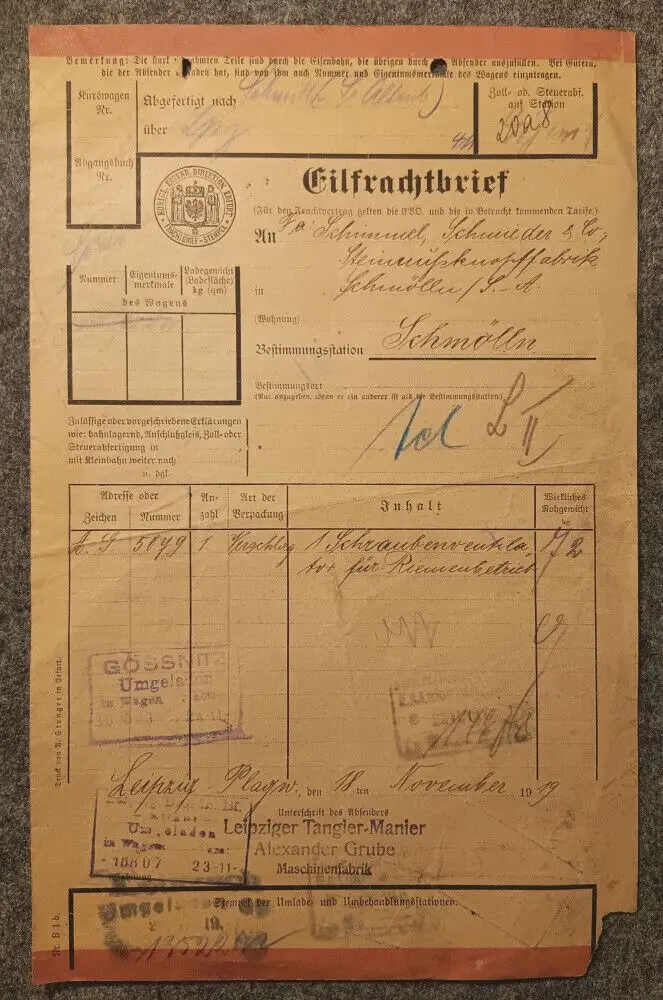 Bemerkung: Die stark umrahmten Teile sind durch die Eisenbahn, die übrigen durch den Absender auszufüllen. Bei Gütern,
die der Absender geladen hat, sind von ihm auch Nummer und Eigentumsmerkmale des Wagens einzutragen.
Kurswagen
Nr.
Abgefertigt nach
über
Zoll- od. Steuerabf.
auf Station
Abgangsbuch
Nr.
KÖNIGL. EISENB. DIREKTION ERFURT
FRACHTBRIEF-STEMPEL
Eilfrachtbrief
(Für den Frachtvertrag gelten die EVO. und die in Betracht kommenden Tarife.)
An Fa Schimmel, Schmieder & Co.,
Steinnußknopffabrik
in Schmölln/S.-A.
Nummer
Eigentums-
merkmale
Ladegewicht
(Ladefläche)
kg (qm)
des Wagens
(Wohnung)
Bestimmungsstation Schmölln
Bestimmungsort
(Nur anzugeben, wenn er ein anderer ist als die Bestimmungsstation)
Zulässige oder vorgeschriebene Erklärungen
wie: bahnlagernd, Anschlußgleis, Zoll- oder
Steuerabfertigung in
mit Kleinbahn weiter nach
u. dgl.
L II
Adresse oder
Zeichen
Nummer
An-
zahl
Art der
Verpackung
Inhalt
Wirkliches
Rohgewicht
kg
A. G. 5079 1 Verschlag 1 Schraubenventila-
tor für Riemenbetrieb 72
GÖSSNITZ
Umgeladen
in Wagen
24.11.
Druck von A. Stenger in Erfurt.
Leipzig-Plagw., den 18ten November 1919
Unterschrift des Absenders
Leipziger Tangier-Manier
Alexander Grube
Maschinenfabrik
Umgeladen
in Wagen
- 18807 23-11-
Wohnung
Stempel der Umlade- und Umbehandlungsstationen:
Umgeladen
19.
Nr. B 1 b.